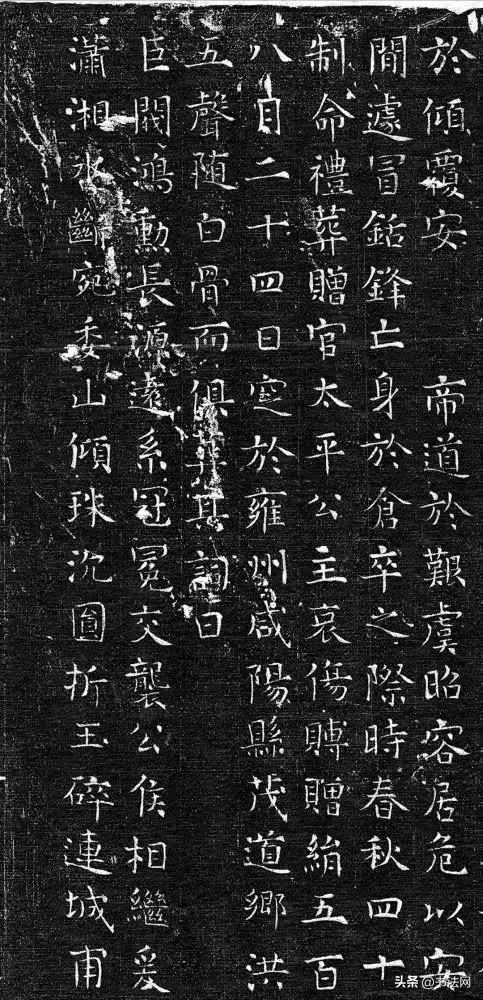 於傾覆安　帝道於艱虞昭容居危以安
間遽冒銛鋒亡身於倉卒之際時春秋四十
制命禮葬贈官太平公主哀傷賻贈絹五百
八月二十四日窆於雍州咸陽縣茂道鄉洪
五聲随白骨而俱葬其詞曰
巨閥鴻勳長源遠系冠冕交襲公侯相繼爰
瀟湘水斷宛委山傾珠沈圓折玉碎連城甫
头条 @书法网